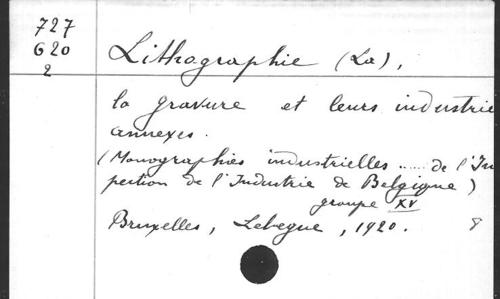 727
620
2
Lithographie (La),
la gravure et leurs industrie
annexes.
(Monographies industrielles ..... de l'In
pection de l'Industrie de Belgique)
groupe XV
Bruxelles, Lebegue, 1920. 8